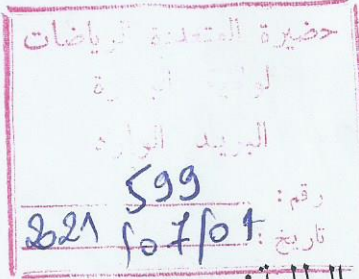 حضيرة المتعددة الرياضات
البريد الوارد
رقم: 599
تاريخ: 2021/07/01